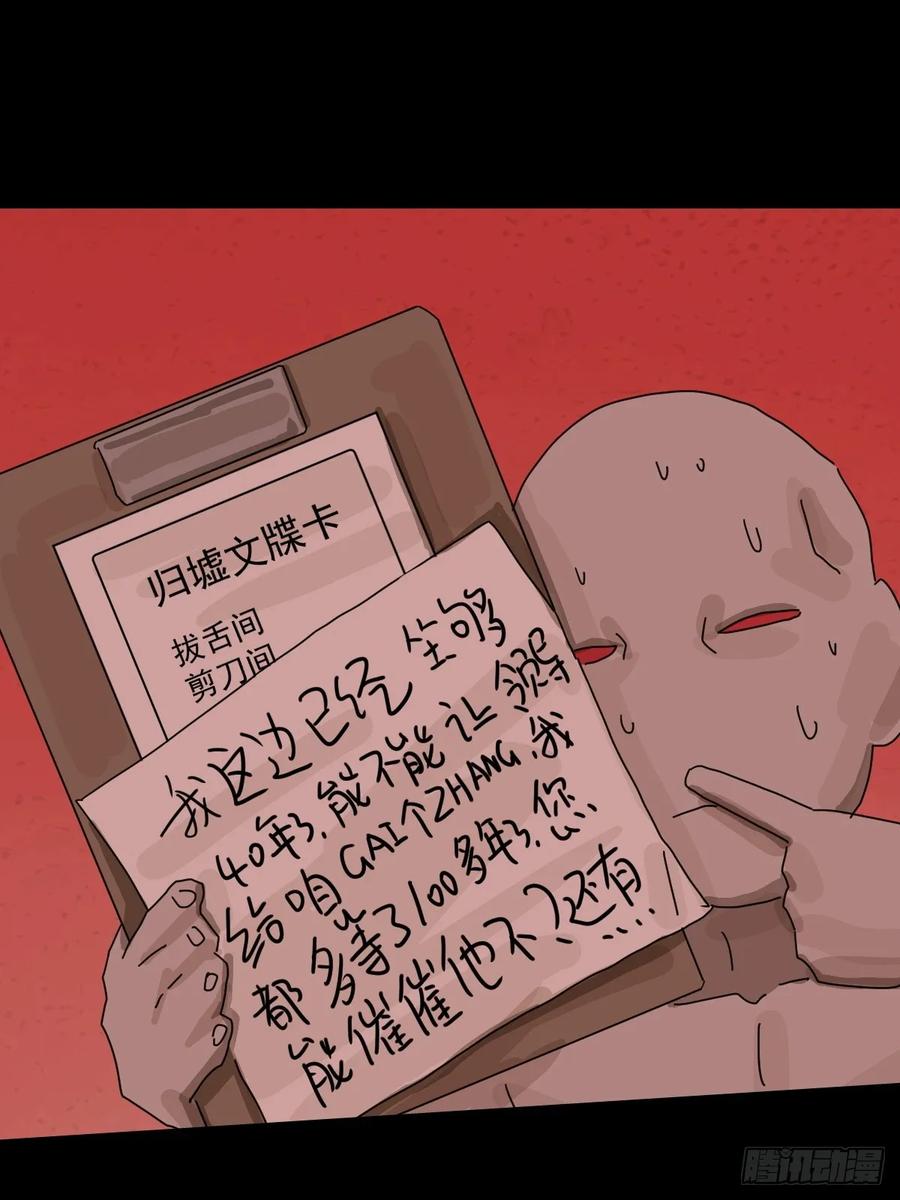 归墟文牒卡
拔舌间
剪刀间
我这边已经坐够
40年了,能不能让领导
给咱GAI个ZHANG,我
都多等了100多年了,您
能催催他不?还有……
腾讯动漫